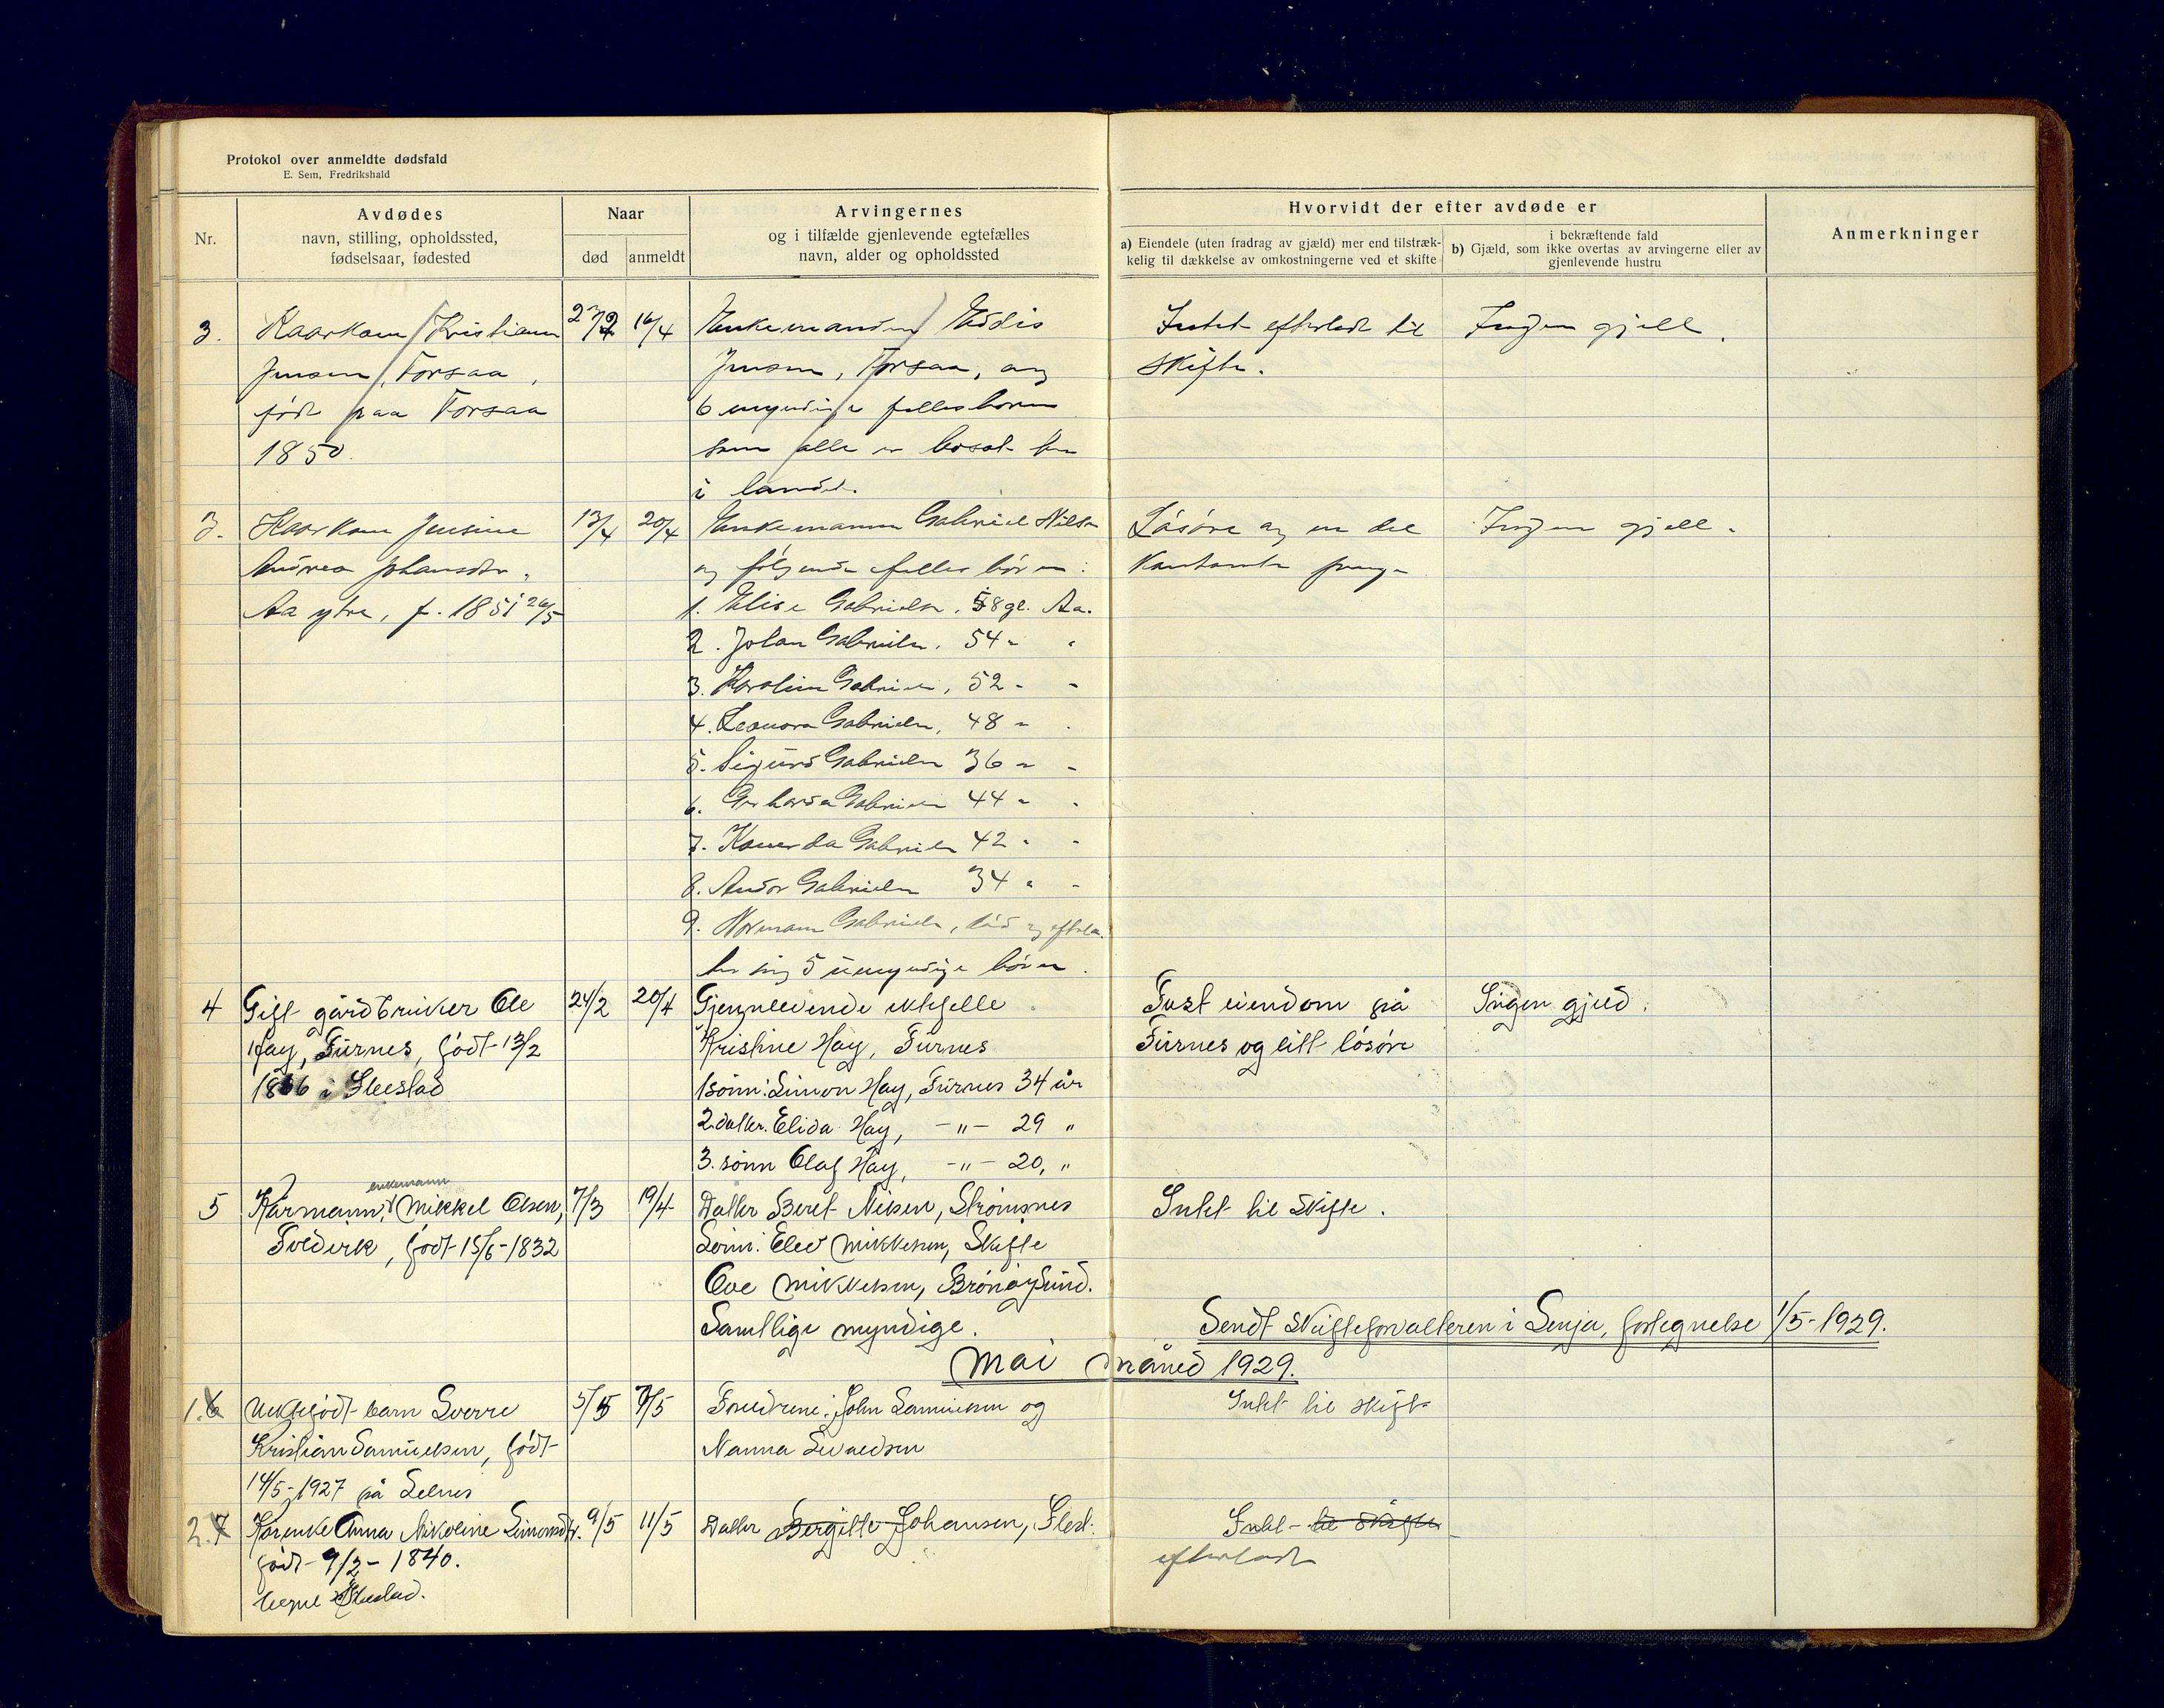 Protokol over anmeldte dødsfald
E. Sem, Fredrikshald
Nr.
Avdødes
navn, stilling, opholdssted,
fødselsaar, fødested
Naar
død
anmeldt
Arvingernes
og i tilfælde gjenlevende egtefælles
navn, alder og opholdssted
Hvorvidt der efter avdøde er
a) Eiendele (uten fradrag av gjæld) mer end tilstræk-
kelig til dækkelse av omkostningerne ved et skifte
i bekræftende fald
b) Gjæld, som ikke overtas av arvingerne eller av
gjenlevende hustru
Anmerkninger
3. Kaarkone Kristianna
Jensen, Forsaa,
født paa Forsaa
1850.
27/2 16/4
Enkemanden Eddis
Jensen, Forsaa, og
6 myndige fellesbørn
som alle er bosat her
i landet.
Intet efterladt til
skifte.
Ingen gjell.
3. Kaarkone Jensine
Andrea Johansdtr,
Aa ytre, f. 1851 26/5
13/4 20/4
Enkemann Gabriel Nilsen
og følgende felles børn:
1. Elise Gabrielsen, 58 gl. Aa.
2. Johan Gabrielsen, 54 " "
3. Karoline Gabrielsen, 52 " "
4. Leonora Gabrielsen, 48 " "
5. Sigurd Gabrielsen 36 " "
6. Gerharda Gabrielsen 44 " "
7. Gabrielsen 42 " "
8. Andor Gabrielsen 34 " "
9. Normann Gabrielsen, død og efterla-
ter sig 5 umyndige børn.
Løsøre og en del
kontante penge
Ingen gjell.
4 Gift gårdbruker Ole
Hay, Furnes, født 13/2
1866 i Ibestad
24/2 20/4
Gjennlevende ektefelle
Kristine Hay, Furnes
1 sønn: Simon Hay, Furnes 34 år
2. datter. Elida Hay, -"- 29 "
3. sønn Olaf Hay, -"- 20, "
Fast eiendom på
Furnes og litt løsøre
Ingen gjeld.
enkemann
5 Kårmann, Mikkel Olsen,
Foldvik, født 15/6-1832
7/3 19/4
Datter Beret Nilsen, Strømsnes
Sønn: Elev Mikkelsen, Skifte
Ole Mikkelsen, Brønøysund.
Samtlige myndige.
Intet til skifte.
Sendt skifteforvalteren i Senja, fortegnelse 1/5-1929.
Mai måned 1929.
1. 6 Uektefødt barn Sverre
Kristian Samuelsen, født
14/5-1927 på Selnes
5/5 7/5
Foreldrene: John Samuelsen og
Nanna Sivaldsen
Intet til skifte
2. 7 Kårenke Anna Nikoline Simonsdtr.
født 9/2-1840.
Ibestad.
9/5 11/5
Datter Bergitte Johansen,
Intet - til skifte
efterladt